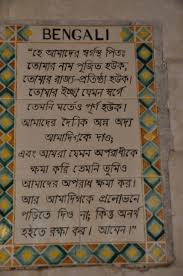 BENGALI
"হে আমাদের স্বর্গস্থ পিতঃ
তোমার নাম পূজিত হউক;
তোমার রাজ্য-প্রতিষ্ঠা হউক;
তোমার ইচ্ছা যেমন স্বর্গে
তেমনি মর্তেও পূর্ণ হউক।
আমাদের দৈনিক অন্ন অদ্য
আমাদিগকে দাও;
এবং আমরা যেমন অপরাধীকে
ক্ষমা করি তেমনি তুমিও
আমাদের অপরাধ ক্ষমা কর।
আর আমাদিগকে প্রলোভনে
পড়িতে দিও না; কিন্তু অনর্থ
হইতে রক্ষা কর। আমেন।"